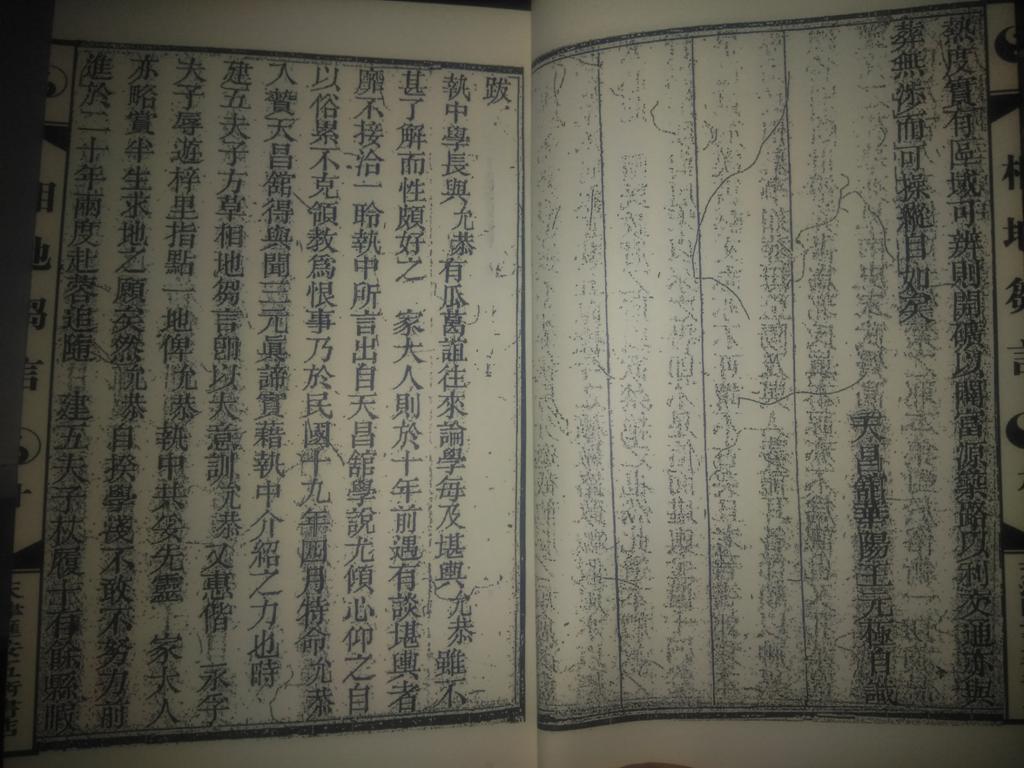 熱度實有區域可辨則開礦以闢富源築路以利交通亦與
葬無涉而可操縱自如矣
天昌舘華陽王元極自識
跋
執中學長與允恭有瓜葛誼往來論學每及堪輿允恭 雖不
甚了解而性頗好之 家大人則於十年前遇有談堪輿者
靡不接洽一聆執中所言出自天昌舘學說尤傾心仰之自
以俗累不克領教爲恨事乃於民國十九年四月特命允恭
入贄天昌舘得與聞三元眞諦實藉執中介紹之力也時
建五夫子方草相地芻言卽以大意訓允恭 又惠偕 永字
夫子辱遊梓里指點一地俾允恭執中共妥先靈 家大人
亦略賞半生求地之願矣然允恭自揆學淺不敢不努力前
進於二十年兩度赴蓉追隨 建五夫子杖履士有餘縣暇
相地芻言
相地芻言